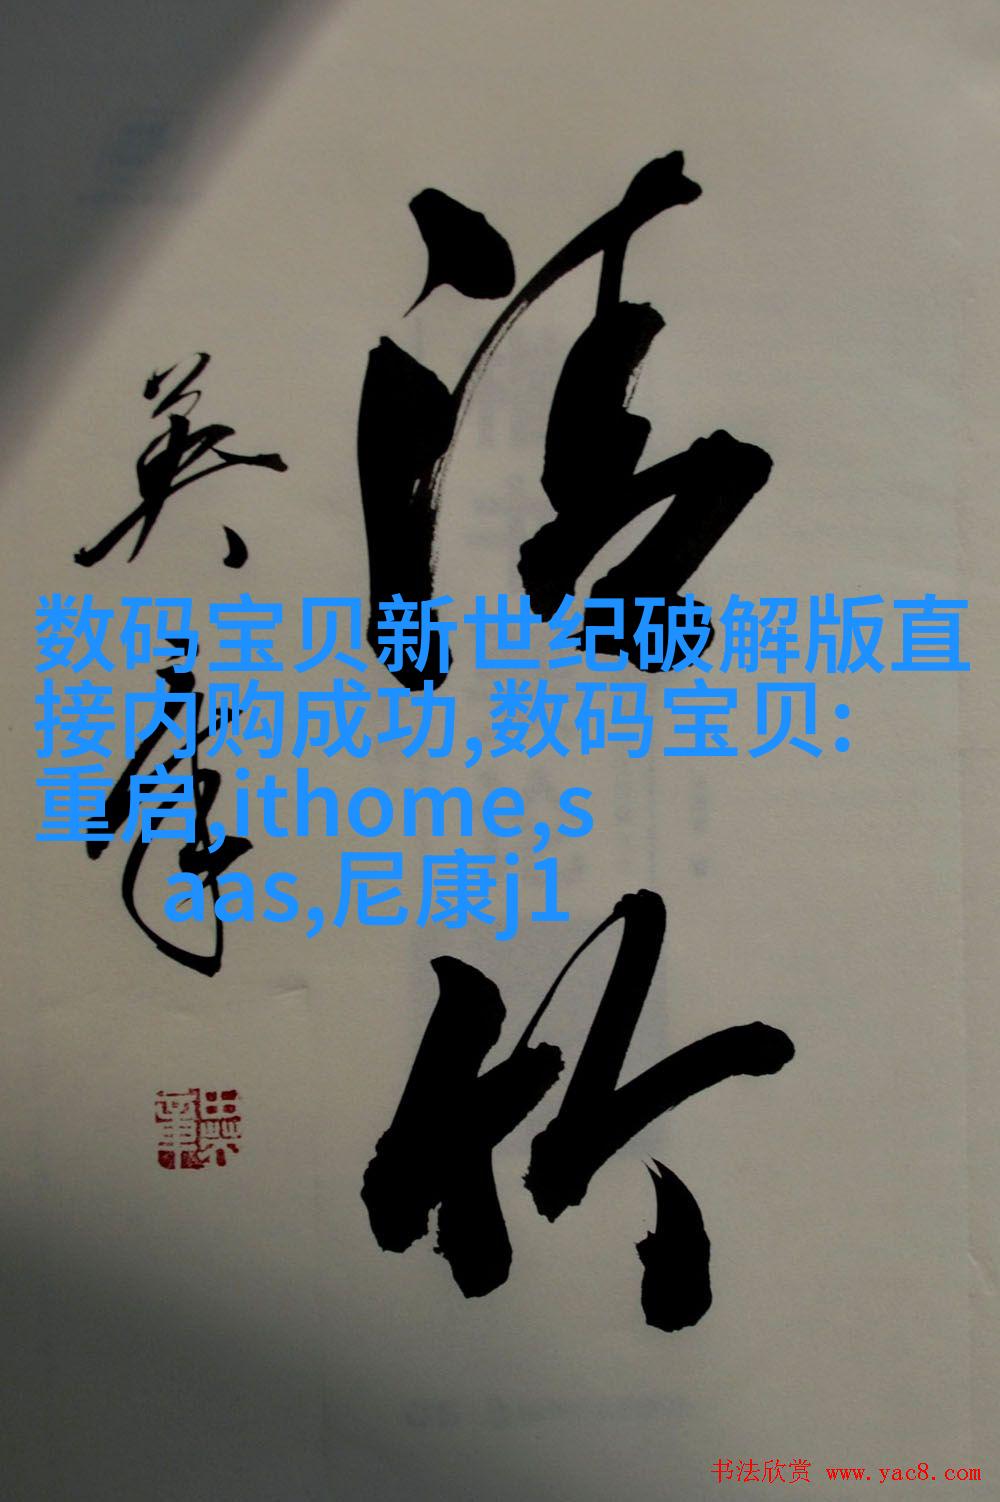 数码宝贝新世纪破解版直
接内购成功,数码宝贝:
重启,ithome,s
aas,尼康j1
竹
英
书法欣赏 www.yac8.com